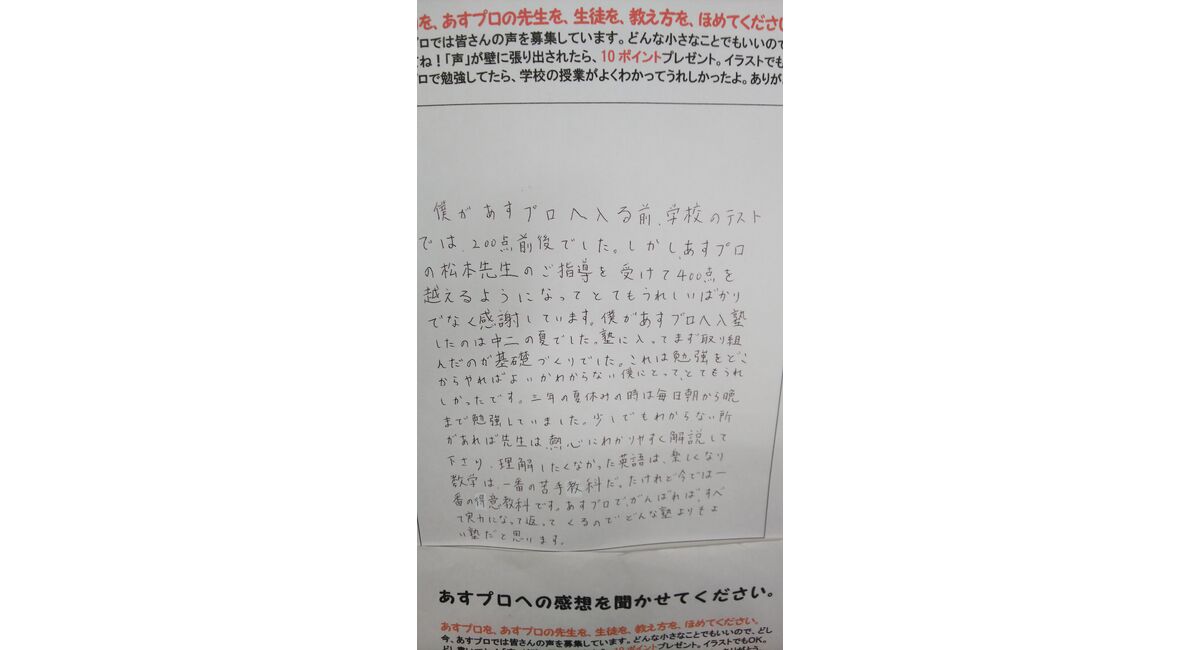 を、あすプロの先生を、生徒を、教え方を、ほめてくださ
プロでは皆さんの声を募集しています。どんな小さなことでもいいので
てね！「声」が壁に張り出されたら、10ポイントプレゼント。イラストでも
プロで勉強してたら、学校の授業がよくわかってうれしかったよ。ありが
僕があすプロへ入る前、学校のテスト
では、200点前後でした。しかし、あすプロ
の松本先生のご指導を受けて400点を
越えるようになってとてもうれしいばかり
でなく感謝しています。僕があすプロへ入塾
したのは中二の夏でした。塾に入ってまず取り組
んだのが基礎づくりでした。これは勉強をどこ
からやればよいかわからない僕にとって、とてもうれ
しかったです。三年の夏休みの時は毎日朝から晩
まで勉強していました。少しでもわからない所
があれば先生は熱心にわかりやすく解説して
下さり、理解したくなかった英語は、楽しくなり
数学は、一番の苦手教科だったけれど今では一
番の得意教科です。あすプロで、がんばれば、すべ
て実力になって返ってくるのでどんな塾よりもよ
い塾だと思います。
あすプロへの感想を聞かせてください。
あすプロを、あすプロの先生を、生徒を、教え方を、ほめてください。
今、あすプロでは皆さんの声を募集しています。どんな小さなことでもいいので、どし
10ポイントプレゼント。イラストでもOK。